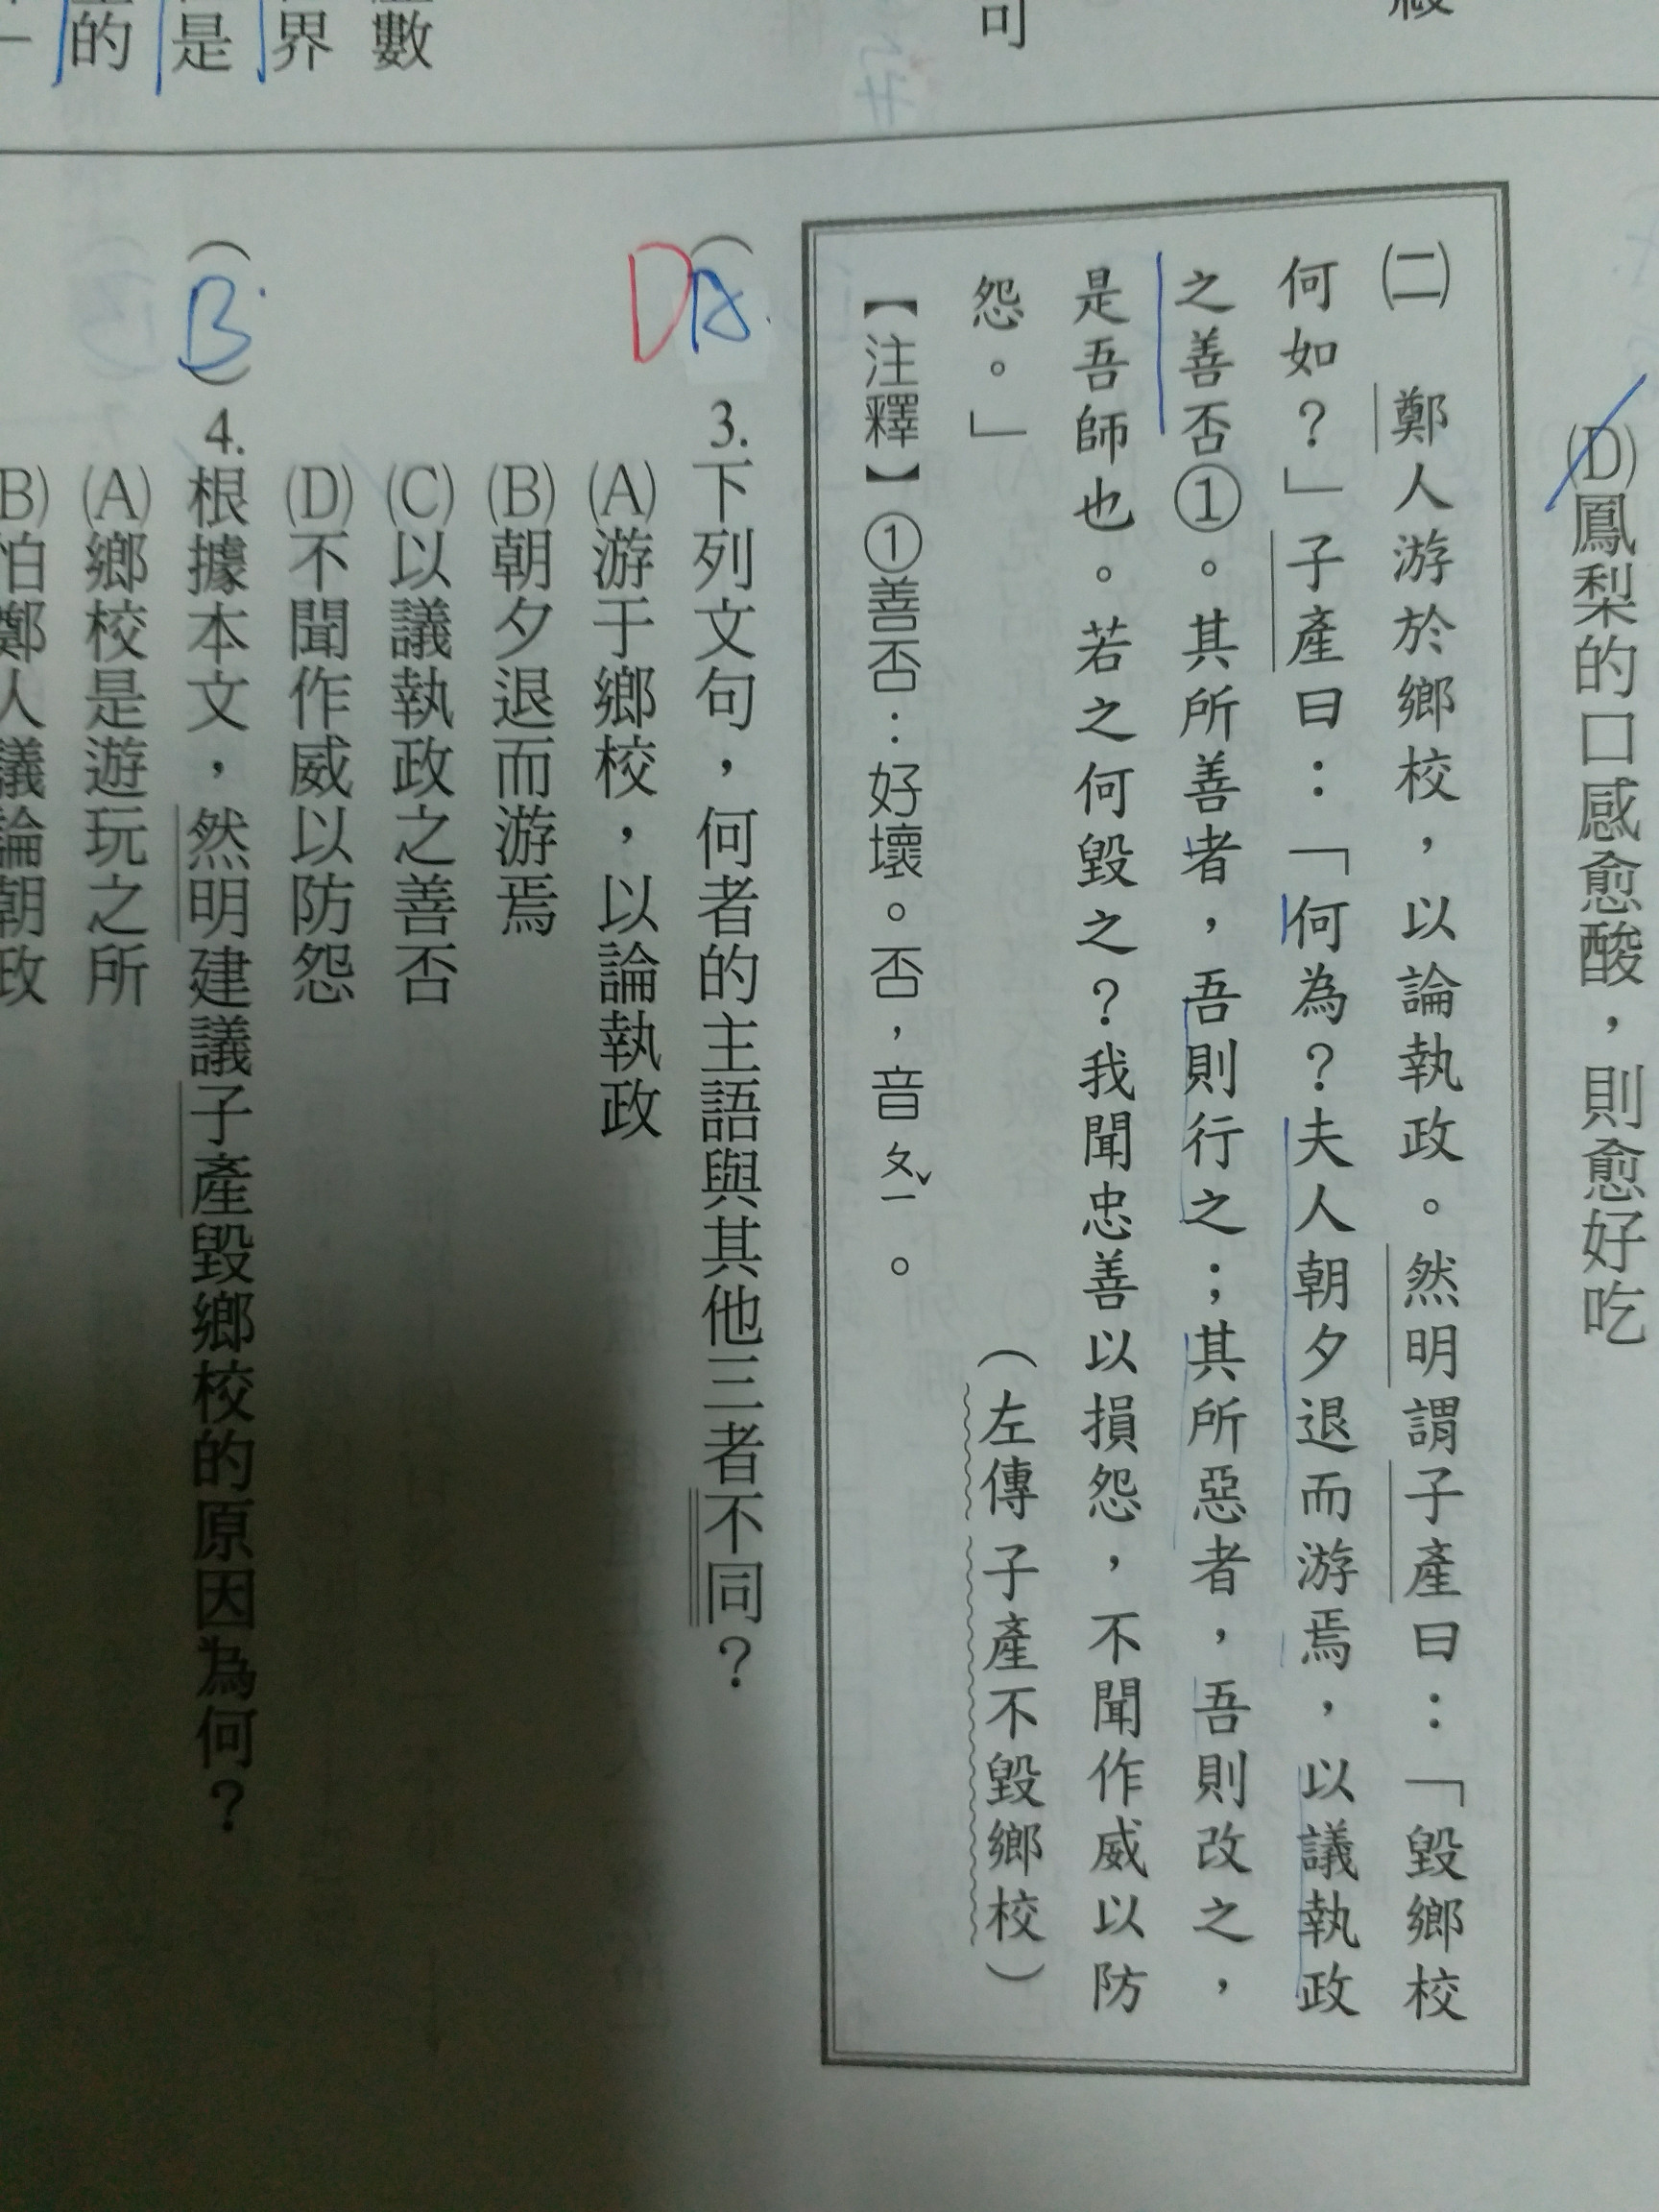 (D)鳳梨的口感愈酸，則愈好吃
可
數
界
是
的
㈡　鄭人游於鄉校，以論執政。然明謂子產曰：「毀鄉校
何如？」子產曰：「何為？夫人朝夕退而游焉，以議執政
之善否①。其所善者，吾則行之；其所惡者，吾則改之，
是吾師也。若之何毀之？我聞忠善以損怨，不聞作威以防
怨。」　（左傳 子產不毀鄉校）
【注釋】①善否：好壞。否，音ㄆㄧˇ。
DA
( ) 3. 下列文句，何者的主語與其他三者不同？
(A)游于鄉校，以論執政
(B)朝夕退而游焉
(C)以議執政之善否
(D)不聞作威以防怨
(B) 4. 根據本文，然明建議子產毀鄉校的原因為何？
(A)鄉校是遊玩之所
(B)怕鄭人議論朝政